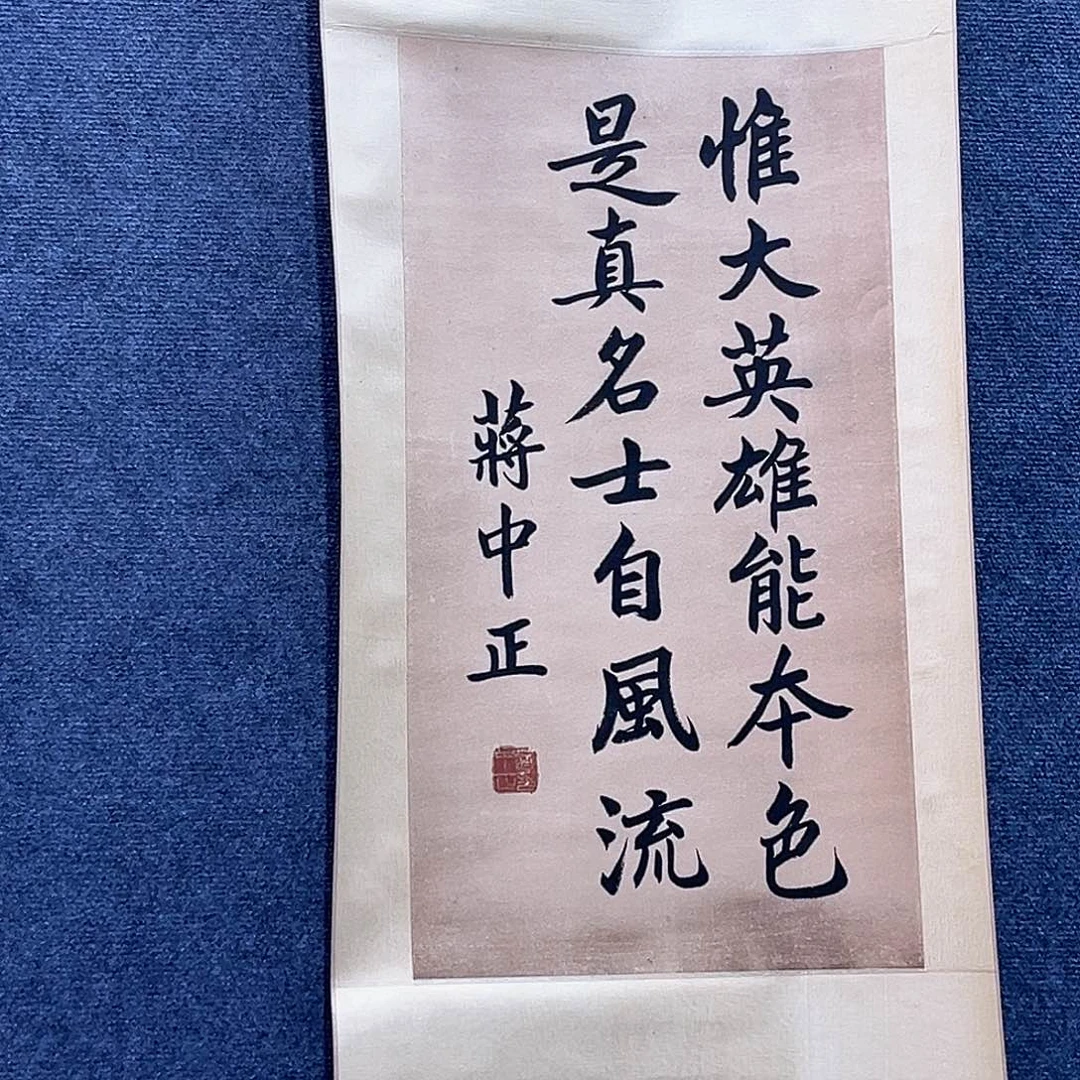 惟大英雄能本色
是真名士自風流
蔣中正